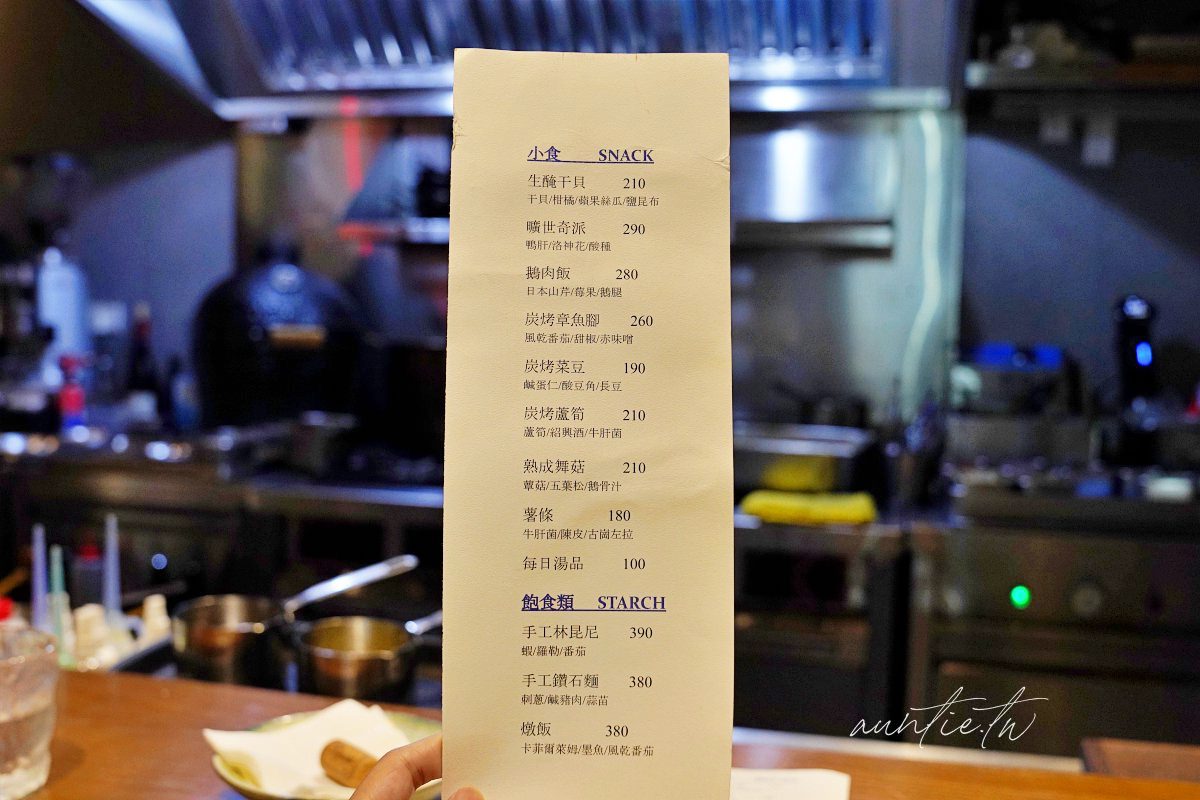 小食 SNACK
生醃干貝 210
干貝/柑橘/蘋果絲瓜/鹽昆布
曠世奇派 290
鴨肝/洛神花/酸種
鵝肉飯 280
日本山芹/莓果/鵝腿
炭烤章魚腳 260
風乾番茄/甜椒/赤味噌
炭烤菜豆 190
鹹蛋仁/酸豆角/長豆
炭烤蘆筍 210
蘆筍/紹興酒/牛肝菌
熟成舞菇 210
蕈菇/五葉松/鵝骨汁
薯條 180
牛肝菌/陳皮/古崗左拉
每日湯品 100
飽食類 STARCH
手工林昆尼 390
蝦/羅勒/番茄
手工鑽石麵 380
刺蔥/鹹豬肉/蒜苗
燉飯 380
卡菲爾萊姆/墨魚/風乾番茄
auntie.tw